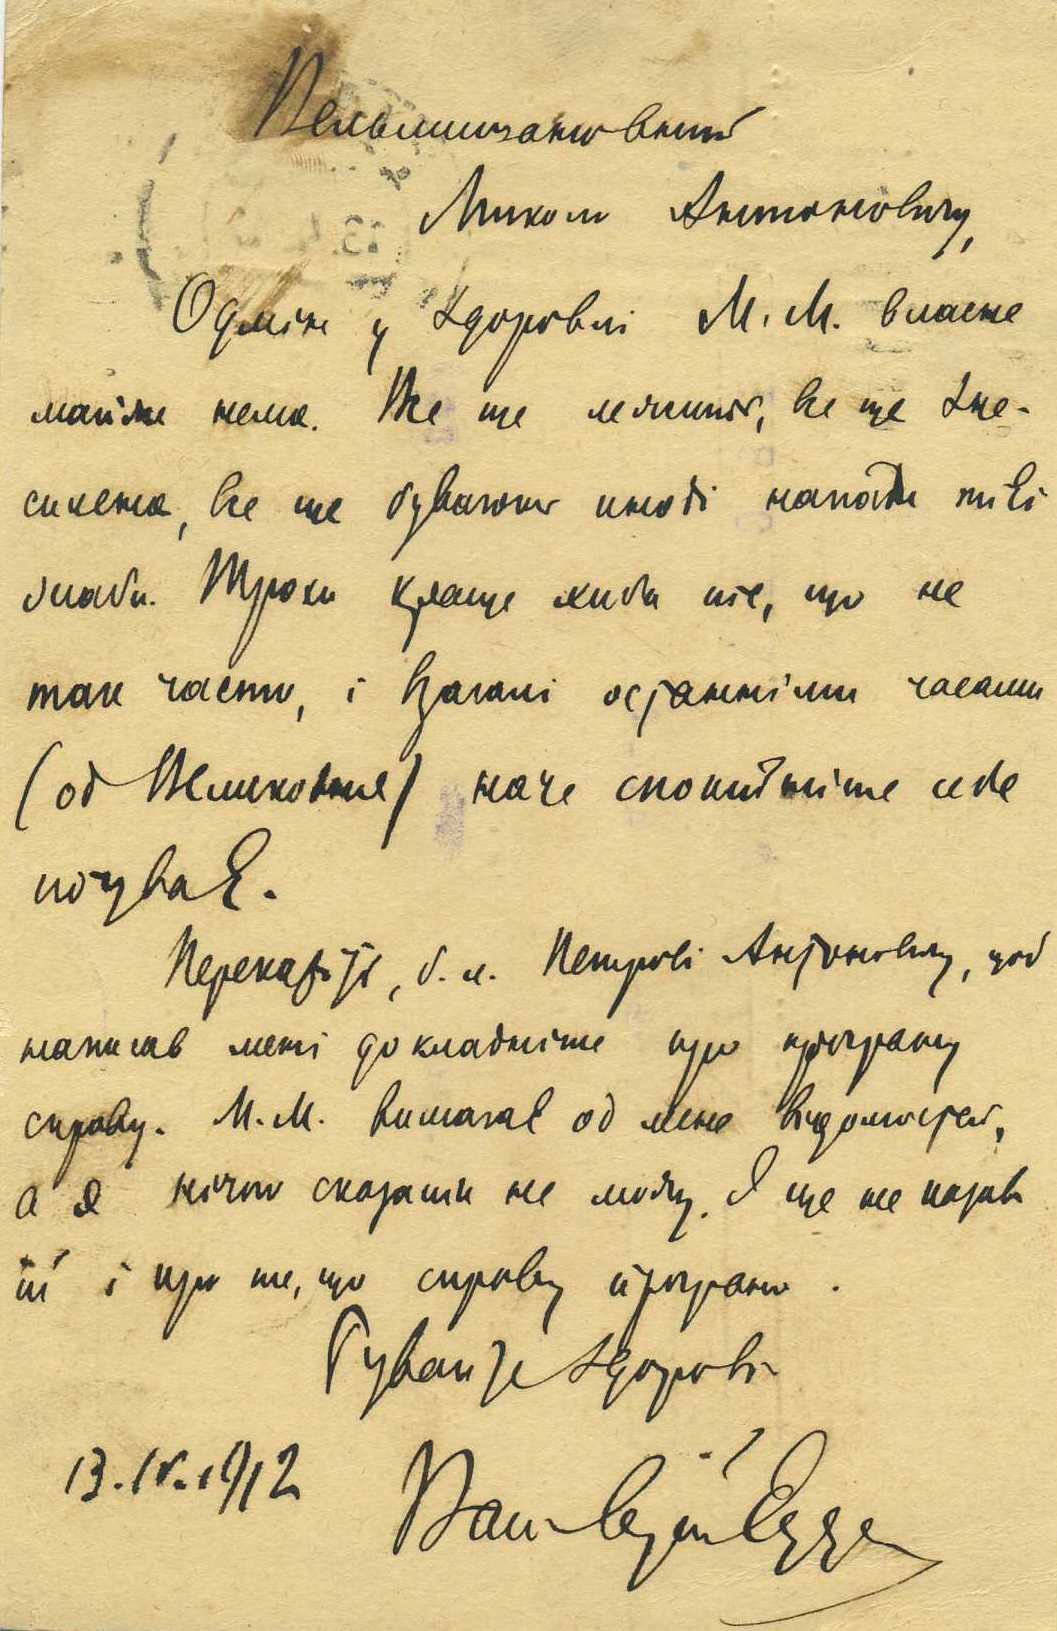 Вельмишановний
Миколо Антоновичу,
Одміни у здоровлі М. М. власне
майже нема. Все ще лежить, все ще зне-
силена, все ще бувають иноді напади тиєї
слаби. Трохи краще хиба те, що не
так часто, і взагалі останніми часами
(од Великодня) наче спокійніше себе
почуває.
Перекажіть, б. л. Петрові Антоновичу, щоб
написав мені докладніше про програну
справу. М. М. вимагає од мене відомостей,
а я нічого сказати не можу. Я ще не казав
їй і про те, що справу програно.
Бувайте здорові
13.IV.1912
Ваш Сергій